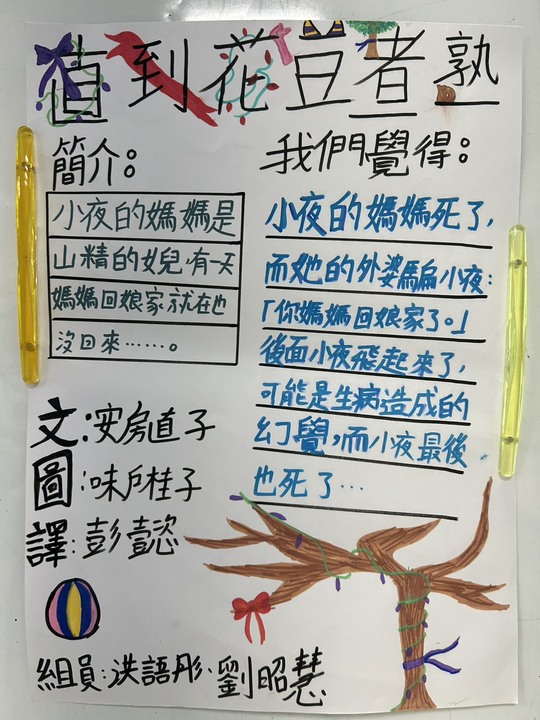 直到花豆煮熟
簡介:
小夜的媽媽是
山精的女兒,有一天
媽媽回娘家就在也
沒回來……。
文:安房直子
圖:味戶桂子
譯:彭懿
組員:洪語彤、劉昭慧
我們覺得:
小夜的媽媽死了,
而她的外婆騙小夜:
「你媽媽回娘家了。」
後面小夜飛起來了,
可能是生病造成的
幻覺,而小夜最後
也死了…